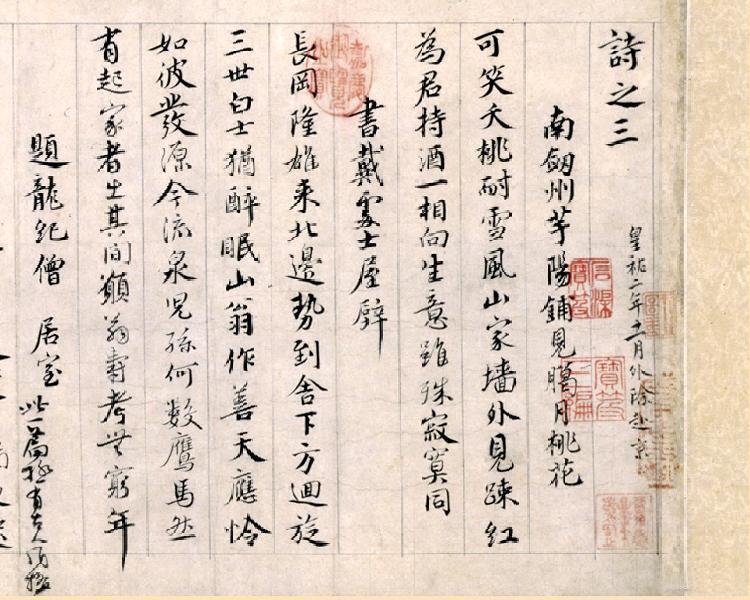 詩之三
皇祐二年十一月外除赴京
南劔州芋陽鋪見臈月桃花
可笑夭桃耐雪風山家墻外見踈紅
為君持酒一相向生意雖殊寂寞同
書戴處士屋壁
長岡隆雄來北邊勢到舍下方迴旋
三世白士猶醉眠山翁作善天應怜
如彼發源今流泉兒孫何數鷹馬然
有起家者出其間願翁壽考無窮年
題龍紀僧居室
此一篇極有古人風格